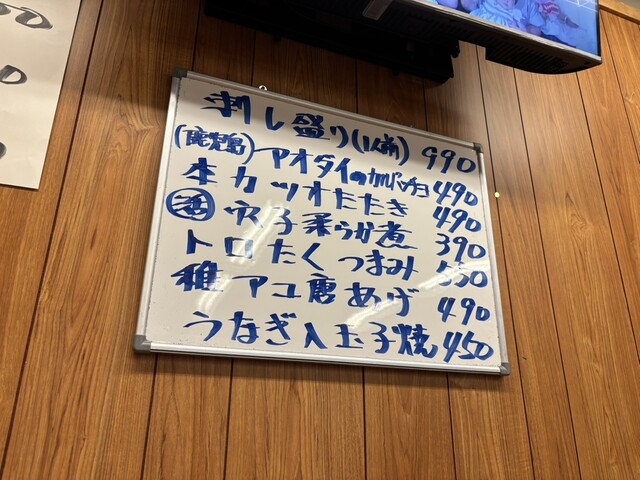 刺し盛り(1人前) 990
(鹿児島)アオダイのカルパッチョ 490
本カツオたたき 490
活穴子柔らか煮 390
トロたくつまみ 550
稚アユ唐あげ 490
うなぎ入玉子焼 450